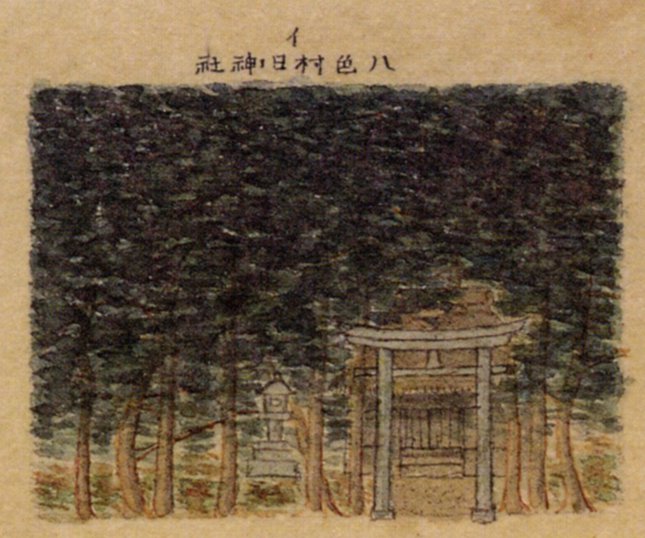 イ
八色村旧神社